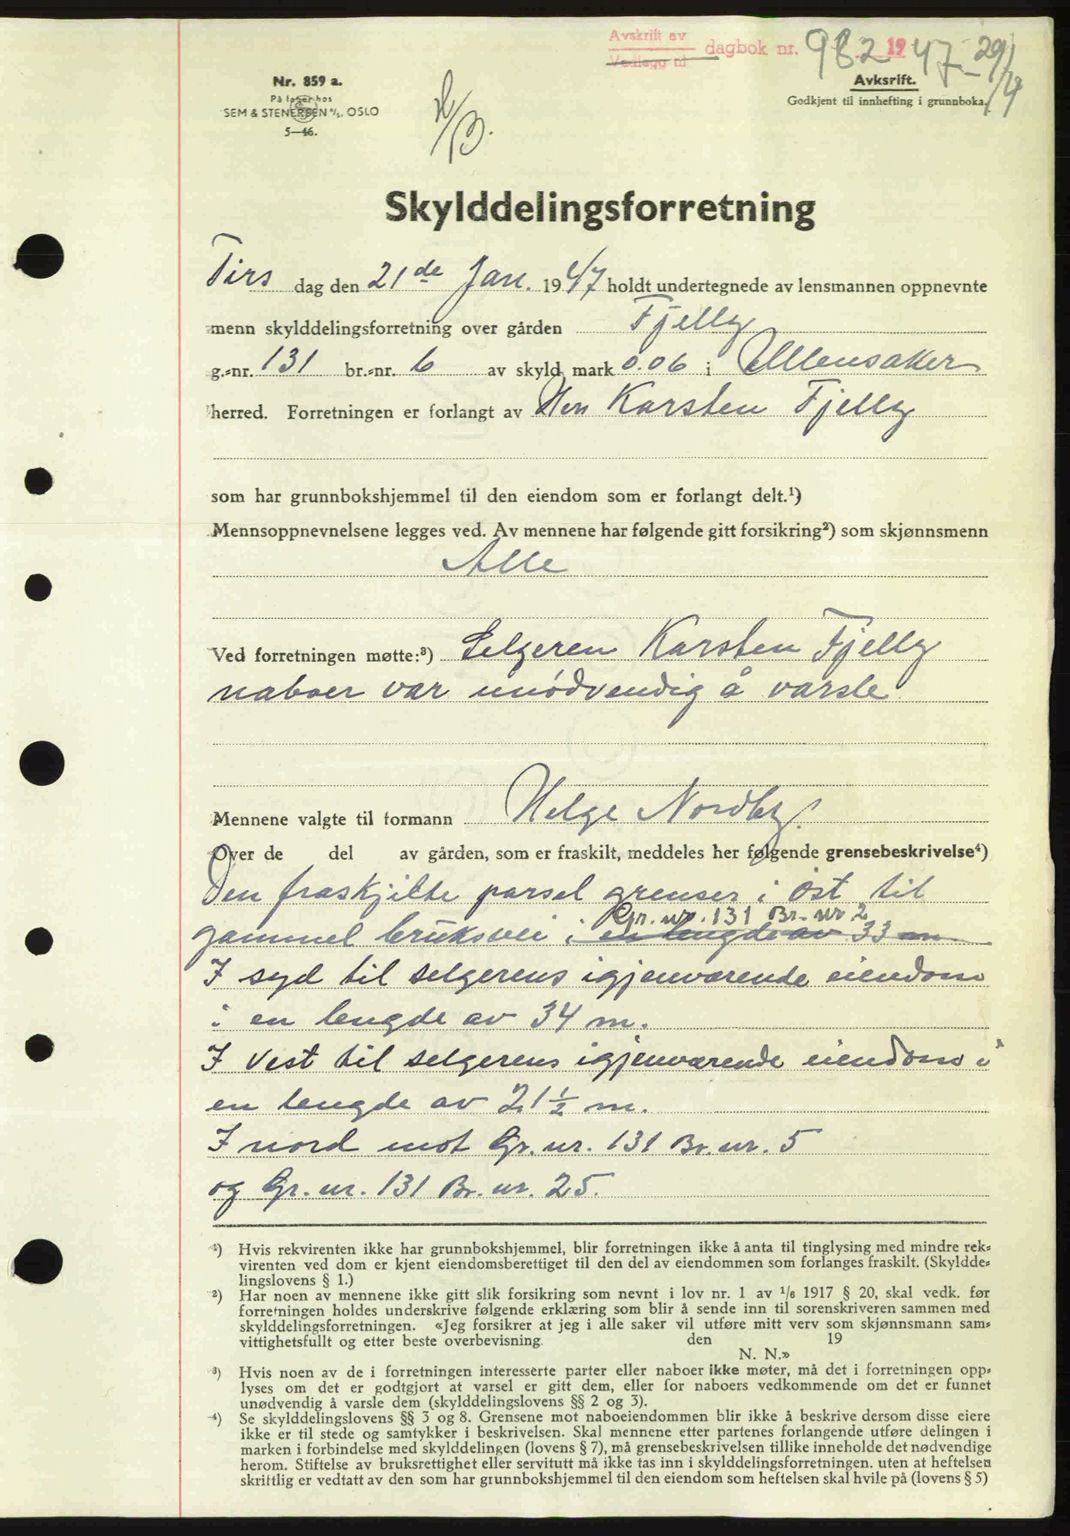 Avskrift av
Vedlegg nr dagbok nr. 982 1947 - 29/4
Avskrift.
Godkjent til innhefting i grunnboka.
Nr. 859 a.
På lager hos
SEM & STENERSEN A/S. OSLO
5—46.
Skylddelingsforretning
Tirs dag den 21de Jan. 1947 holdt undertegnede av lensmannen oppnevnte
menn skylddelingsforretning over gården Fjelly
g.-nr. 131 br.-nr. 6 av skyld mark 0.06 i Ullensaker
herred. Forretningen er forlangt av Herr Karsten Fjelly
som har grunnbokshjemmel til den eiendom som er forlangt delt.¹)
Mennsoppnevnelsene legges ved. Av mennene har følgende gitt forsikring²) som skjønnsmenn
Alle
Ved forretningen møtte:³) Selgeren Karsten Fjelly
naboer var unødvendig å varsle.
Mennene valgte til formann Helge Nordby.
Over de del av gården, som er fraskilt, meddeles her følgende grensebeskrivelse⁴)
Den fraskjilte parsel grenser i øst til
Gr. nr. 131 Br. nr 2
gammel bruksvei i en lengde av 33 m
I syd til selgerens igjenværende eiendom
i en lengde av 34 m.
I vest til selgerens igjenværende eiendom i
en lengde av 21 ½ m.
I nord mot Gr. nr. 131 Br. nr. 5
og Gr. nr. 131 Br. nr. 25.
¹) Hvis rekvirenten ikke har grunnbokshjemmel, blir forretningen ikke å anta til tinglysing med mindre rek-
virenten ved dom er kjent eiendomsberettiget til den del av eiendommen som forlanges fraskilt. (Skyldde-
lingslovens § 1.)
²) Har noen av mennene ikke gitt slik forsikring som nevnt i lov nr. 1 av ¹/₆ 1917 § 20, skal vedk. før
forretningen holdes underskrive følgende erklæring som blir å sende inn til sorenskriveren sammen med
skylddelingsforretningen. «Jeg forsikrer at jeg i alle saker vil utføre mitt verv som skjønnsmann sam-
vittighetsfullt og etter beste overbevisning. den 19
N. N.»
³) Hvis noen av de i forretningen interesserte parter eller naboer ikke møter, må det i forretningen opp-
lyses om det er godtgjort at varsel er gitt dem, eller for naboers vedkommende om det er funnet
unødvendig å varsle dem (skylddelingslovens §§ 2 og 3).
⁴) Se skylddelingslovens §§ 3 og 8. Grensene mot naboeiendommen blir ikke å beskrive dersom disse eiere
ikke er til stede og samtykker i beskrivelsen. Skal mennene etter partenes forlangende utføre delingen i
marken i forbindelse med skylddelingen (lovens § 7), må grensebeskrivelsen tillike inneholde det nødvendige
herom. Stiftelse av bruksrettighet eller servitutt må ikke tas inn i skylddelingsforretningen. uten at heftelsen
skriftlig er vedtatt av den som har grunnbokshjemmel til den eiendom som heftelsen skal hvile på (lovens § 5)